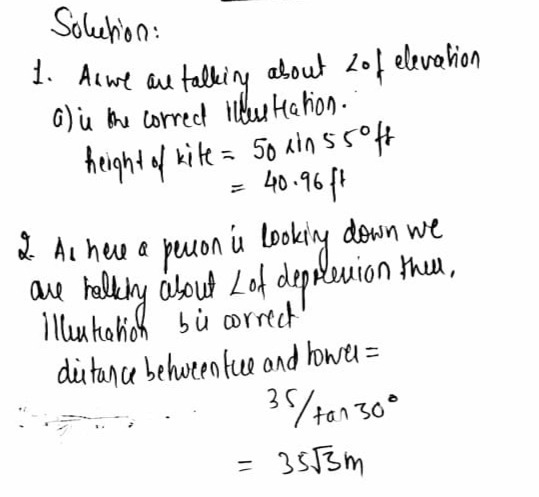 Solution:
1. As we are talking about ∠of elevation
a) is the correct Illustration.
height of kite = 50 sin 55° ft
= 40.96 ft
2. As here a person is looking down we
are talking about ∠of depression then,
Illustration b is correct
distance between tree and tower =
35/tan 30°
= 35√3m